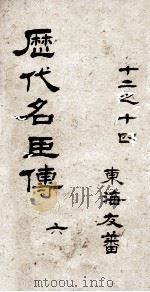 十二之十四
東海友蕃
歷代名臣傳
六
mtoou.info/